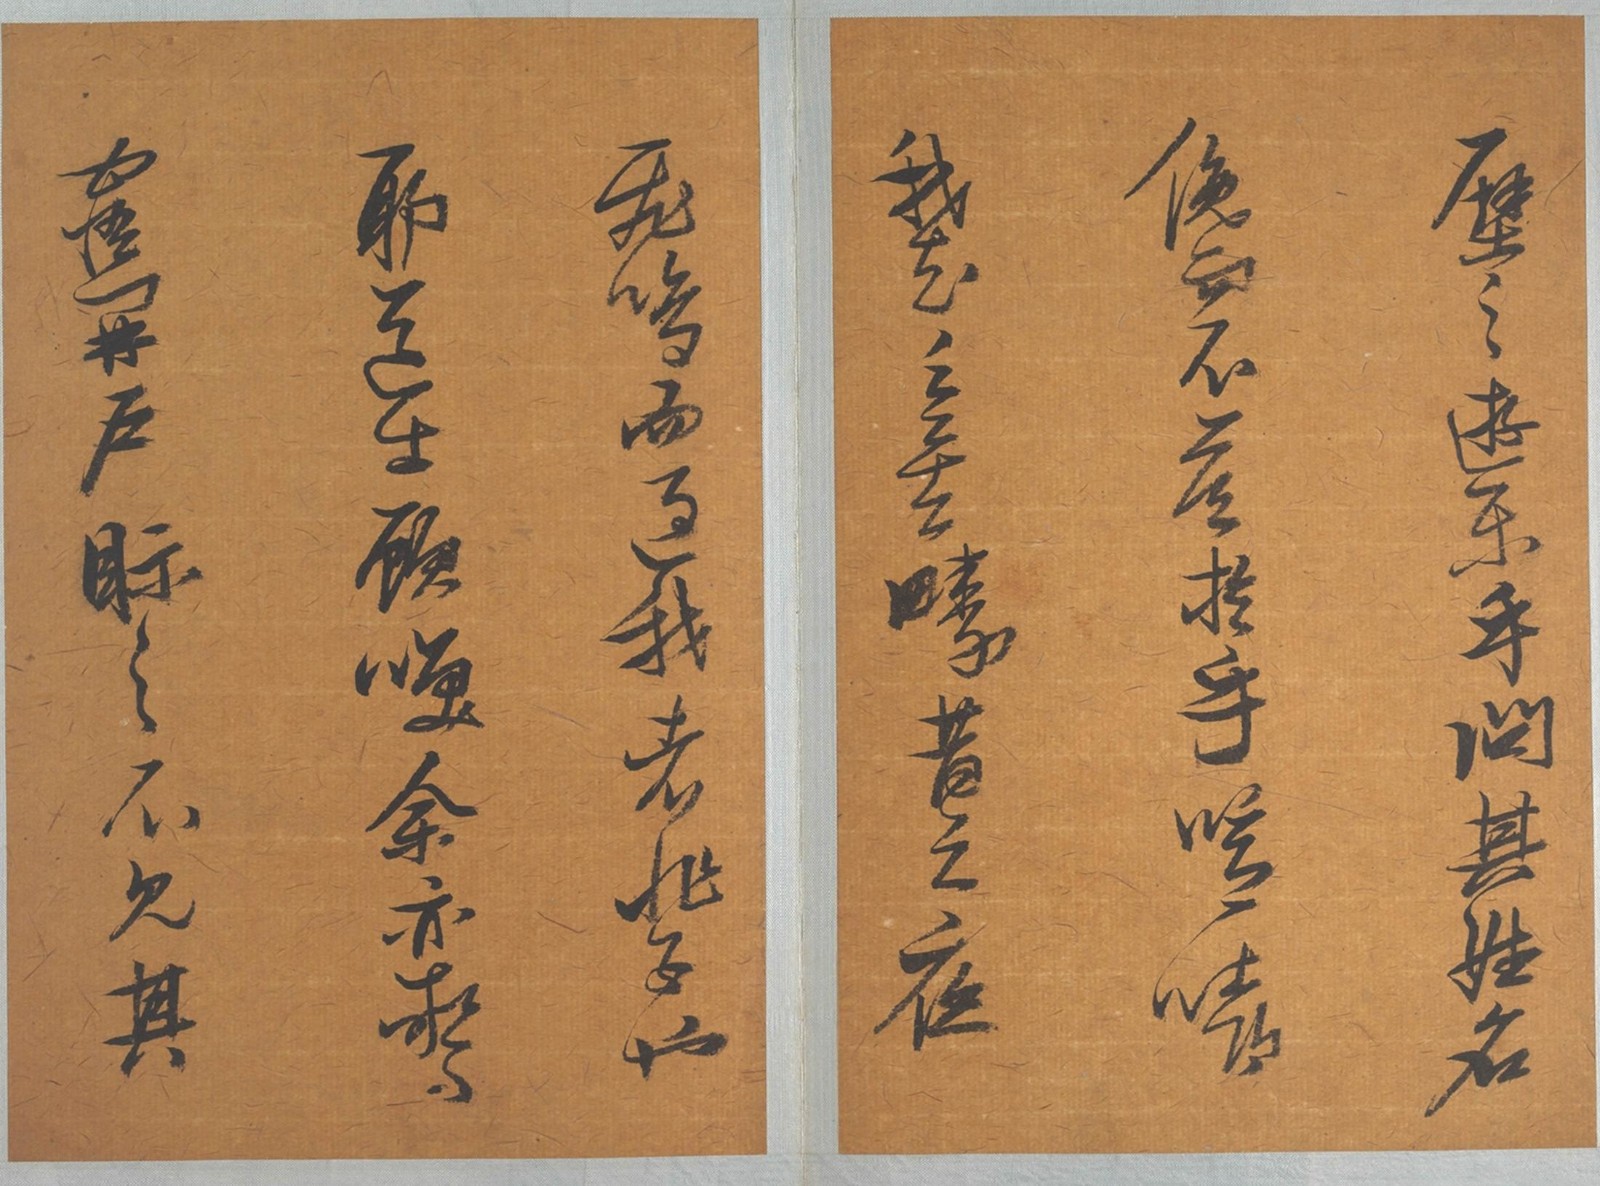 壁之遊樂乎問其姓名
俛而不答於乎噫嘻
我知之矣疇昔之夜
飛鳴而過我者非子也
耶道士顧咲余亦驚
寤開戶眎之不見其